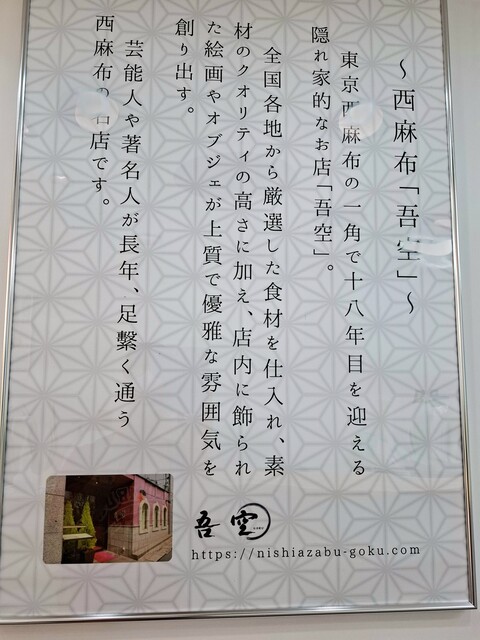 ～西麻布「吾空」～
東京西麻布の一角で十八年目を迎える
隠れ家的なお店「吾空」。
全国各地から厳選した食材を仕入れ、素
材のクオリティの高さに加え、店内に飾られ
た絵画やオブジェが上質で優雅な雰囲気を
創り出す。
芸能人や著名人が長年、足繋く通う
西麻布の名店です。
吾空
https://nishiazabu-goku.com